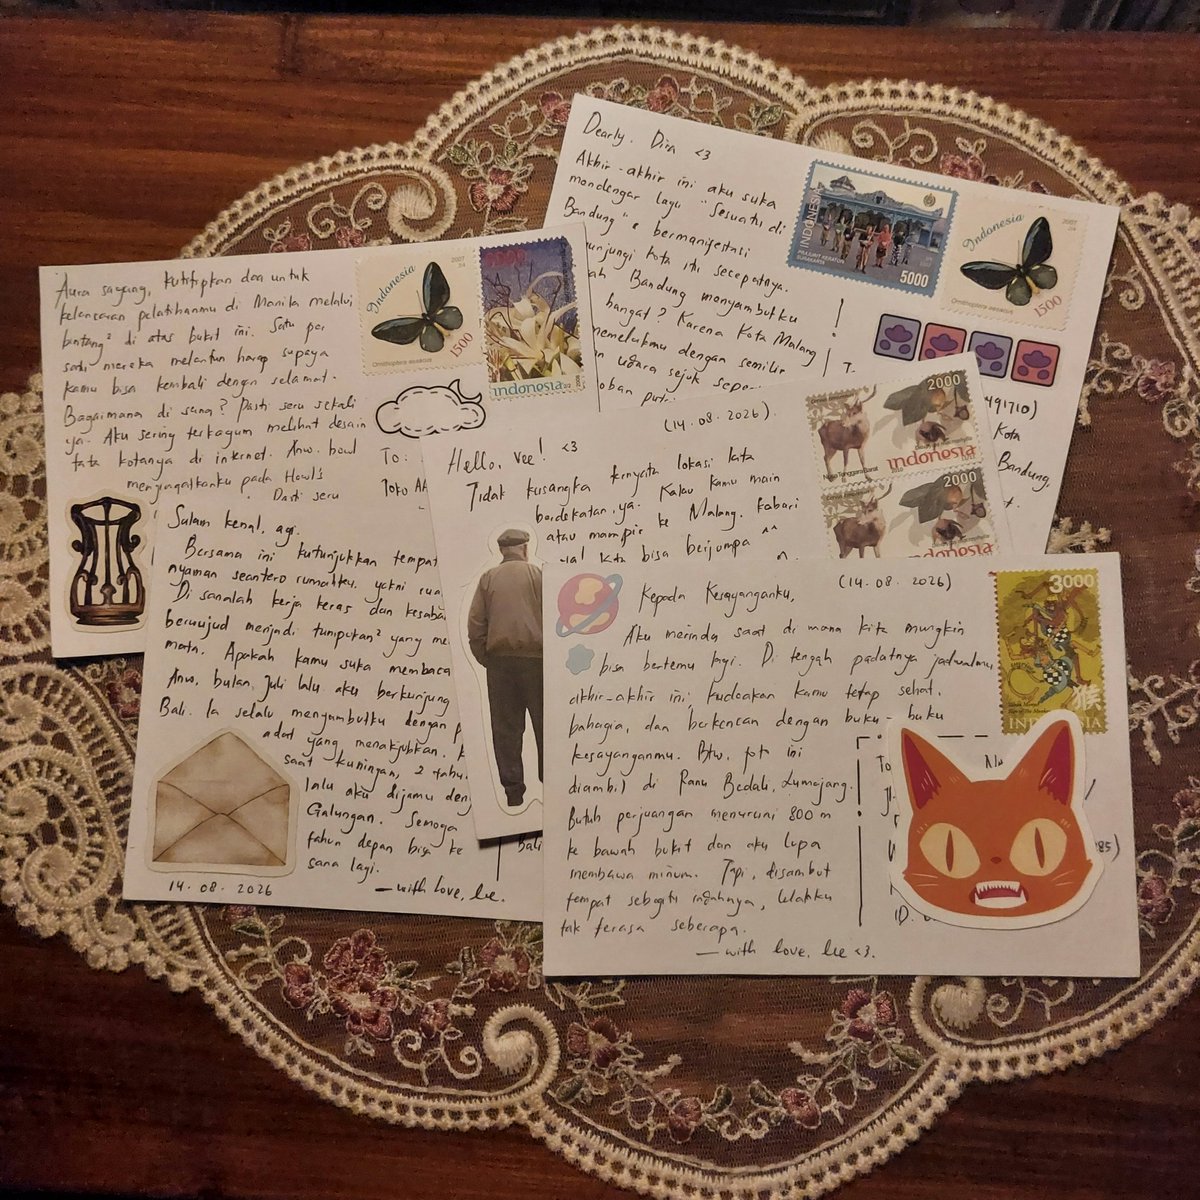 Dearly. Dira <3
Akhir-akhir ini aku suka
mendengar lagu "Sesuatu di
Bandung" & bermanifestasi
unjungi kota itu secepatnya.
ah Bandung menyambutku
hangat? Karena Kota Malang
memelukmu dengan semilir
n udara sejuk sepe
oban putri
!
T
491710)
Kota
Bandung,
t.
INDONESIA
PRAJURIT KERATON
SURAKARTA
5000
Indonesia
2007
Ornithoptera aesacus
1500
Aura sayang, kutitipkan doa untuk
kelancaran pelatihanmu di Manila melalui
bintang² di atas bukit ini. Satu per
satu mereka melantun harap supaya
kamu bisa kembali dengan selamat.
Bagaimana di sana? Pasti seru sekali
ya. Aku sering terkagum melihat desain
tata kotanya di internet. Anw. bowl
menyagatkanku pada Howl's
. Pasti seru
To:
Toko Ak
Indonesia
2007
Ornithoptera aesacus
1500
indonesia
(14.08.2026).
Hello, Vee! <3
Tidak kusangka ternyata lokasi kita
berdekatan, ya. Kalau kamu main
atau mampir ke Malang, kabari
ya! kita bisa berjumpa ^^
Bali
2000
Nusa Tenggara Barat
indonesia
2000
indonesia
Salam kenal, agi.
Bersama ini kutunjukkan tempat
nyaman seantero rumahku, yakni rua
Di sanalah kerja keras dan kesaba
berwujud menjadi tumpukan² yang me
mata. Apakah kamu suka membaca
Anw, bulan Juli lalu aku berkunjung
Bali. Ia selalu menyambutku dengan p
adat yang menakjubkan. K
saat kuningan, 2 tahu
lalu aku dijamu den
Galungan. Semoga
tahun depan bisa ke
sana lagi.
14.08.2026
— with love, lie.
Kepada Kesayanganku,
(14.08.2026)
Aku merindu saat di mana kita mungkin
bisa bertemu lagi. Di tengah padatnya jadwalmu
akhir-akhir ini; kudoakan kamu tetap sehat,
bahagia, dan berkencan dengan buku-buku
kesayanganmu. Btw, foto ini
diambil di Ranu Bedali, Lumajang.
Butuh perjuangan menuruni 800 m
ke bawah bukit dan aku lupa
membawa minum. Tapi, disambut
tempat sebegitu indahnya, lelahku
tak terasa seberapa.
— with love, lie <3.
To
Nu
Jl.
85)
ID.
3000
猴
INDONESIA